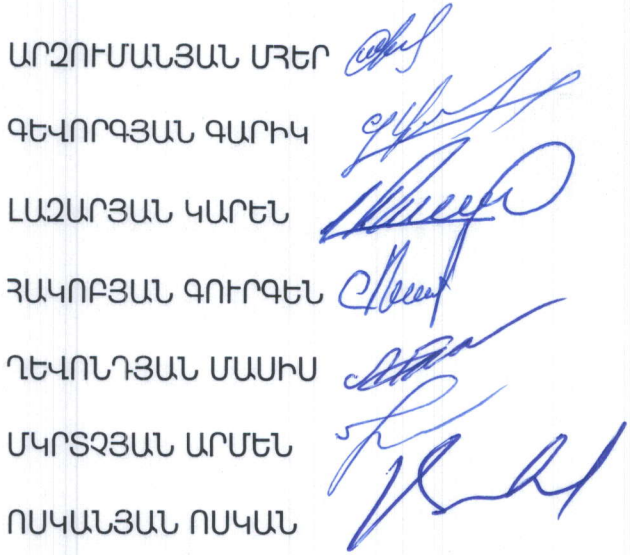 ԱՐԶՈՒՄԱՆՅԱՆ ՄՀԵՐ
ԳԵՎՈՐԳՅԱՆ ԳԱՐԻԿ
ԼԱԶԱՐՅԱՆ ԿԱՐԵՆ
ՀԱԿՈԲՅԱՆ ԳՈՒՐԳԵՆ
ՂԵՎՈՆԴՅԱՆ ՄԱՍԻՍ
ՄԿՐՏՉՅԱՆ ԱՐՄԵՆ
ՈՍԿԱՆՅԱՆ ՈՍԿԱՆ